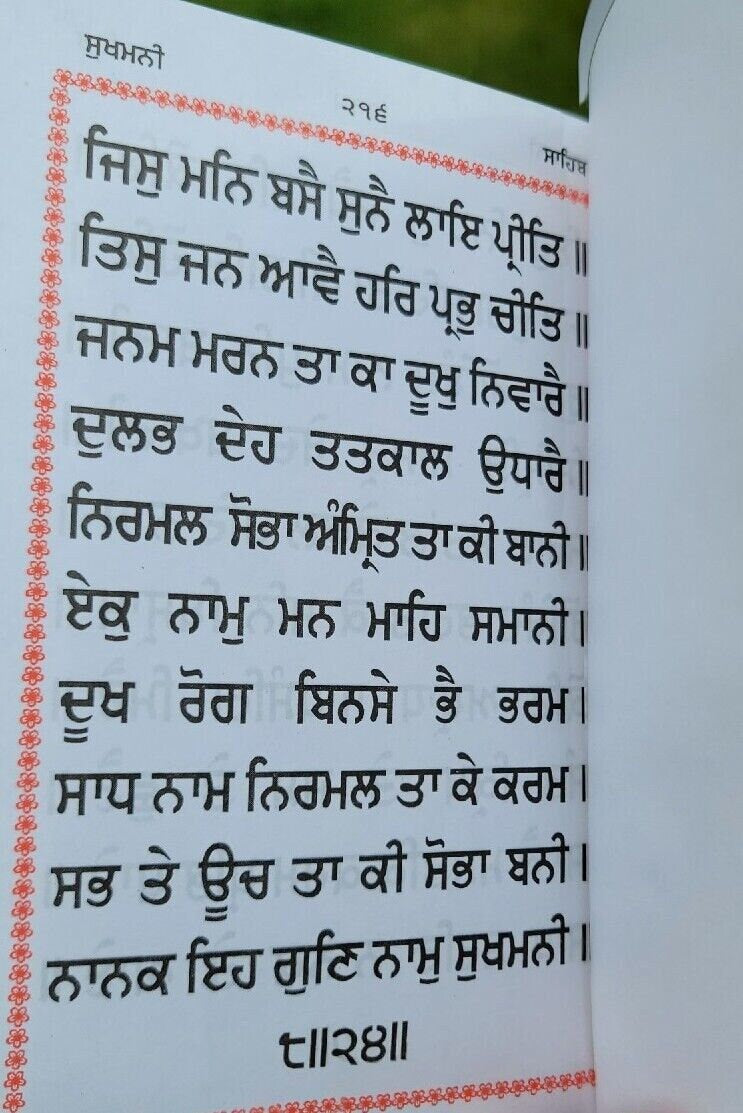 ਸੁਖਮਨੀ
੨੧੬
ਸਾਹਿਬ
ਜਿਸੁ ਮਨਿ ਬਸੈ ਸੁਨੈ ਲਾਇ ਪ੍ਰੀਤਿ ॥
ਤਿਸੁ ਜਨ ਆਵੈ ਹਰਿ ਪ੍ਰਭੁ ਚੀਤਿ ॥
ਜਨਮ ਮਰਨ ਤਾ ਕਾ ਦੂਖੁ ਨਿਵਾਰੈ ॥
ਦੁਲਭ ਦੇਹ ਤਤਕਾਲ ਉਧਾਰੈ ॥
ਨਿਰਮਲ ਸੋਭਾ ਅੰਮ੍ਰਿਤ ਤਾ ਕੀ ਬਾਨੀ ॥
ਏਕੁ ਨਾਮੁ ਮਨ ਮਾਹਿ ਸਮਾਨੀ ।
ਦੂਖ ਰੋਗ ਬਿਨਸੇ ਭੈ ਭਰਮ ।
ਸਾਧ ਨਾਮ ਨਿਰਮਲ ਤਾ ਕੇ ਕਰਮ ।
ਸਭ ਤੇ ਊਚ ਤਾ ਕੀ ਸੋਭਾ ਬਨੀ ।
ਨਾਨਕ ਇਹ ਗੁਣਿ ਨਾਮੁ ਸੁਖਮਨੀ ॥
੮॥੨੪॥